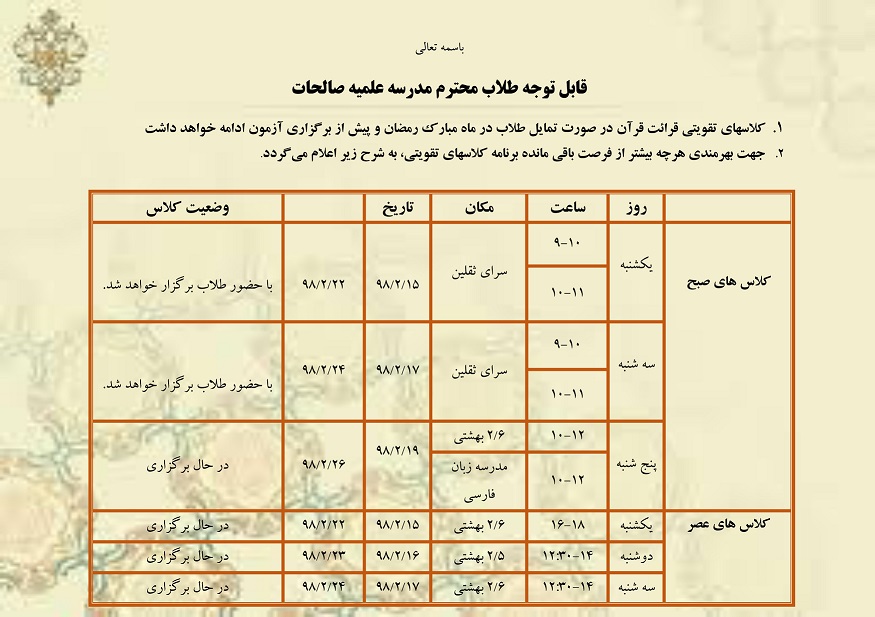 باسمه تعالی
قابل توجه طلاب محترم مدرسه علمیه صالحات
۱. کلاسهای تقویتی قرائت قرآن در صورت تمایل طلاب در ماه مبارک رمضان و پیش از برگزاری آزمون ادامه خواهد داشت
۲. جهت بهرمندی هرچه بیشتر از فرصت باقی مانده برنامه کلاسهای تقویتی، به شرح زیر اعلام می‌گردد.
روز ساعت مکان تاریخ وضعیت کلاس
کلاس های صبح
یکشنبه
۹-۱۰
۱۰-۱۱
سرای ثقلین
۹۸/۲/۱۵
۹۸/۲/۲۲
با حضور طلاب برگزار خواهد شد.
سه شنبه
۹-۱۰
۱۰-۱۱
سرای ثقلین
۹۸/۲/۱۷
۹۸/۲/۲۴
با حضور طلاب برگزار خواهد شد.
پنج شنبه
۱۰-۱۲
۲/۶ بهشتی
۱۰-۱۲
مدرسه زبان
فارسی
۹۸/۲/۱۹
۹۸/۲/۲۶
در حال برگزاری
کلاس های عصر
یکشنبه ۱۶-۱۸ ۲/۶ بهشتی ۹۸/۲/۱۵ ۹۸/۲/۲۲ در حال برگزاری
دوشنبه ۱۲:۳۰-۱۴ ۲/۵ بهشتی ۹۸/۲/۱۶ ۹۸/۲/۲۳ در حال برگزاری
سه شنبه ۱۲:۳۰-۱۴ ۲/۶ بهشتی ۹۸/۲/۱۷ ۹۸/۲/۲۴ در حال برگزاری